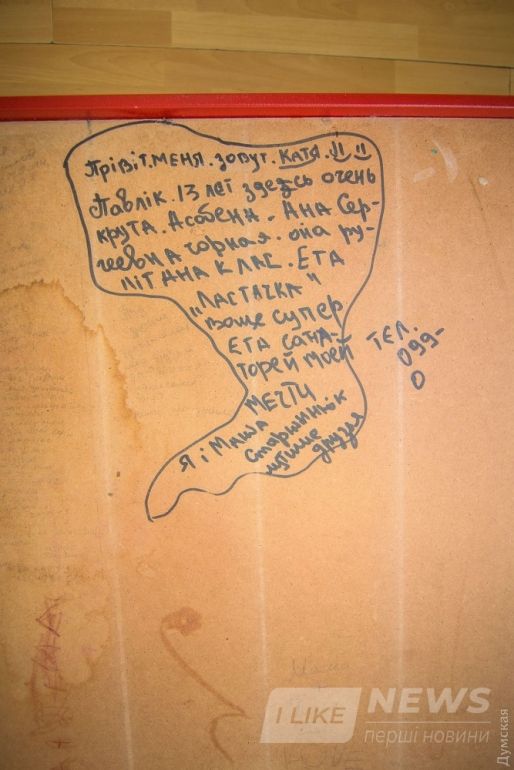 Прівіт.меня.зовут.Катя.
Павлік.13 лет здесь очень
крута.Асобена.Ана Сер-
геевна горная.она ру-
літ ана клас.Ета
"Ластачка"
ваще супер
ета сана-
торей моей
мечти
Я і Маша
Старшинньк
лутшие
друзья
тел.
099-
0
I LIKE NEWS
перші новини
Думская